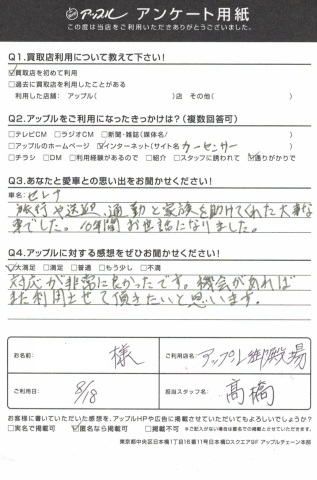 アップル アンケート用紙
この度は当店をご利用いただきありがとうございました。
Q1.買取店利用について教えて下さい!
☑買取店を初めて利用
□過去に買取店を利用したことがある
利用した店舗: アップル( )店 その他( )
Q2.アップルをご利用になったきっかけは?(複数回答可)
□テレビCM □ラジオCM □新聞・雑誌(媒体名/ )
□アップルのホームページ ☑インターネット(サイト名 カーセンサー )
□チラシ □DM □利用経験があるので □紹介 □スタッフに誘われて ☑通りがかりで
Q3.あなたと愛車との思い出をお聞かせください!
車名: セレナ
旅行や送迎、通勤と家族を助けてくれた大事な
車でした。10年間お世話になりました。
Q4.アップルに対する感想をぜひお聞かせください!
☑大満足 □満足 □普通 □もう少し □不満
対応が非常に良かったです。機会があれば
また利用させて頂きたいと思います。
お名前: 様 ご利用店名: アップル御殿場
ご利用日: 8/18 担当スタッフ名: 高橋
お客様に書いていただいた感想を、アップルHPや広告に掲載させていただいてもよろしいでしょうか?
□実名で掲載可 ☑匿名なら掲載可 □掲載不可 ※ご記入がない場合は匿名での掲載とさせていただきます。
東京都中央区日本橋1丁目16番11号日本橋Dスクエア5F アップルチェーン本部